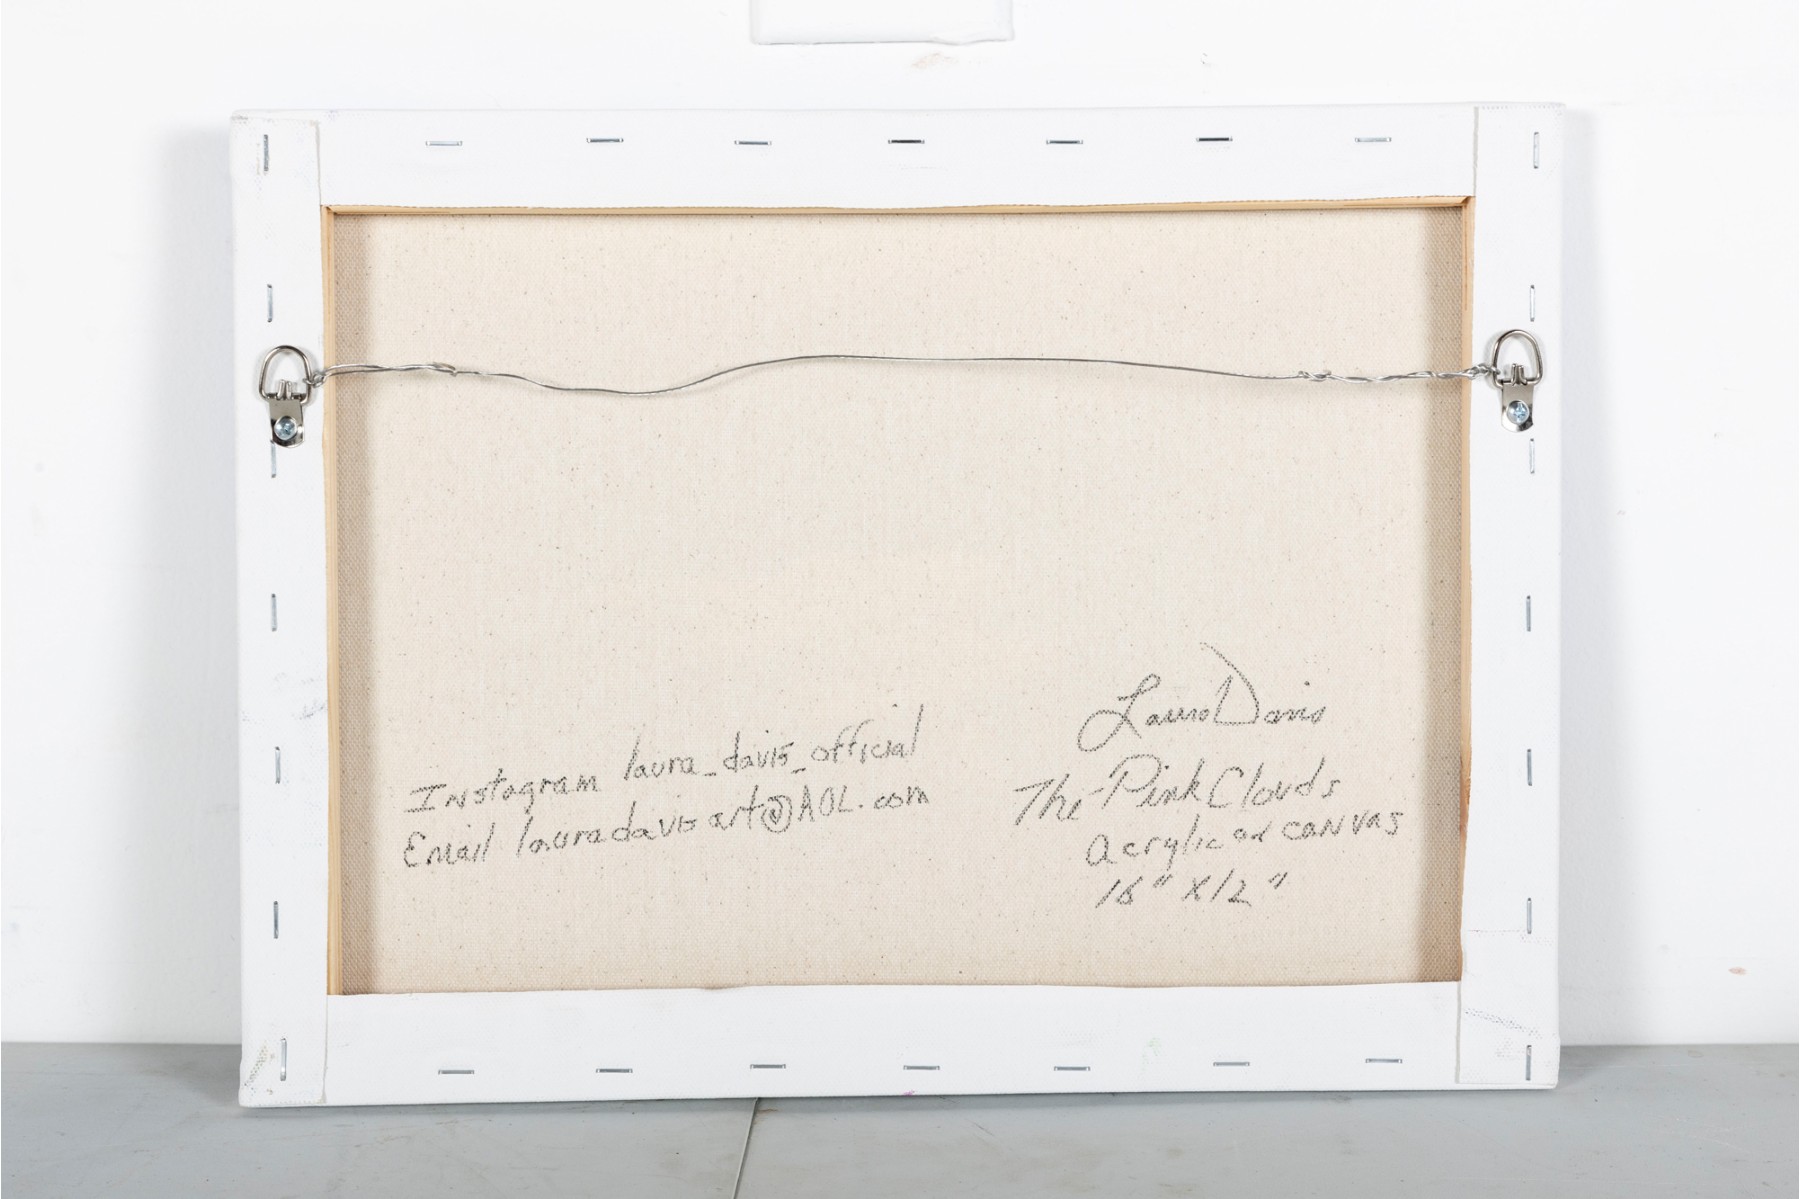 Instagram laura_davis_official
Email lauradavisart@AOL.com
Laura Davis
The Pink Clouds
acrylic on canvas
16" x 12"